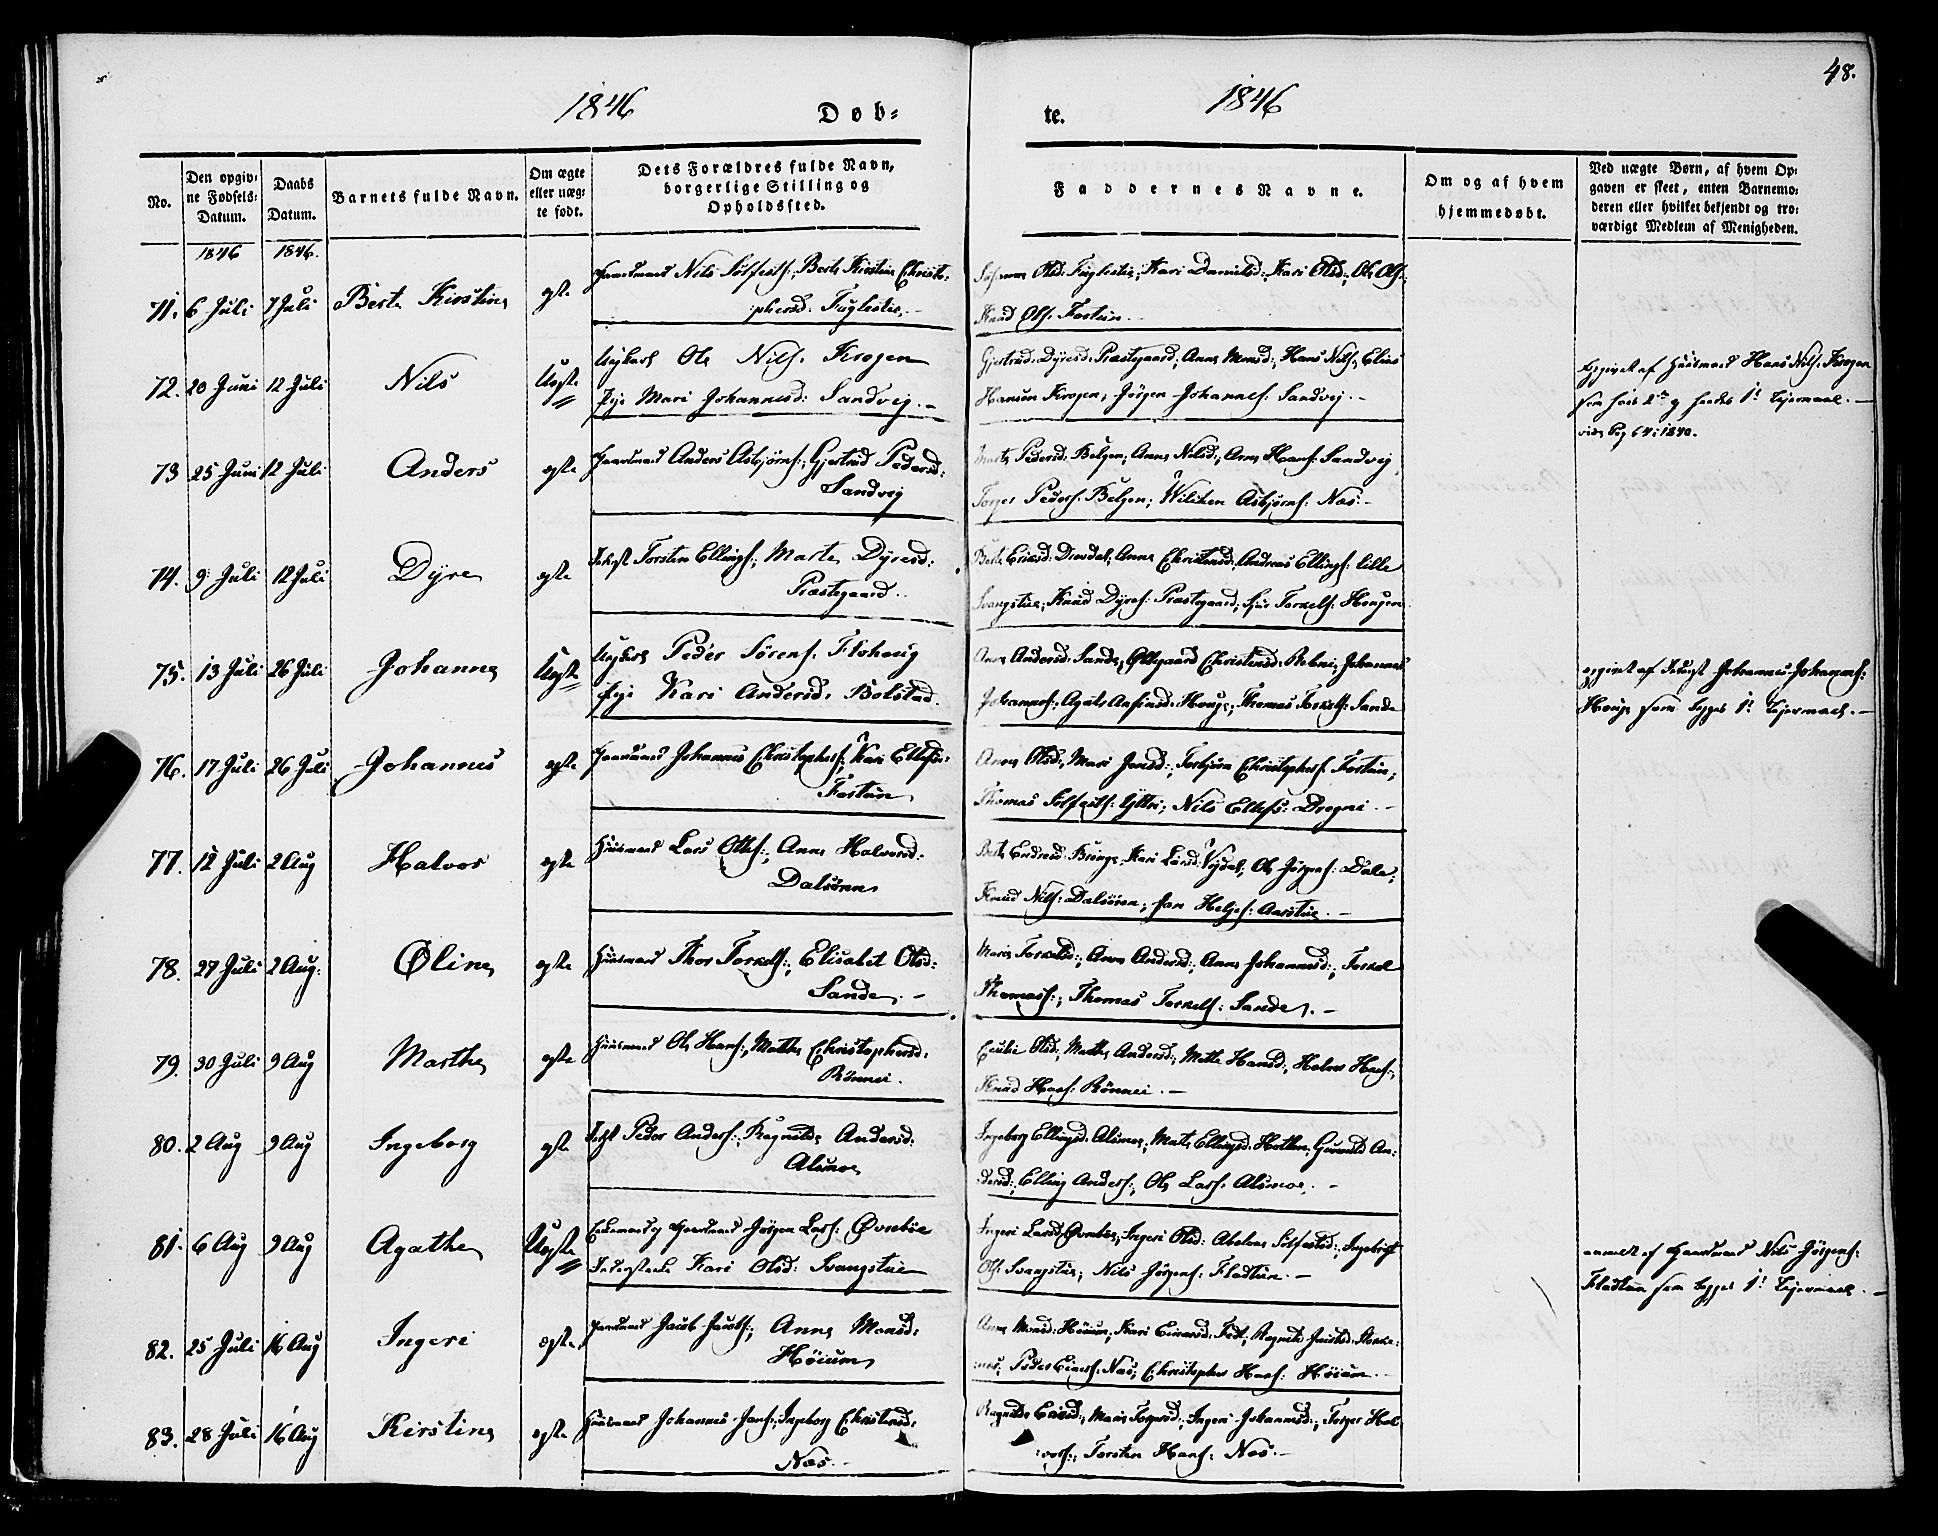 48.
1846 Døb-
te. 1846
No.
Den opgiv-
ne Fødsels-
Datum.
Daabs
Datum.
Barnets fulde Navn.
Om ægte
eller uæg-
te født.
Dets Forældres fulde Navn,
borgerlige Stilling og
Opholdssted.
Faddernes Navne.
Om og af hvem
hjemmedøbt.
Ved uægte Børn, af hvem Op-
gaven er skeet, enten Barnemo-
deren eller hvilket bekjendt og tro-
værdigt Medlem af Menigheden.
1846 1846.
71. 6 Juli 7 Juli Berte Kirstine egte
Gaardmand Nils Solfests:, Berte Kirstine Christo-
phersd: Fuglestie. -
Olsd: Fuglestie, Kari Danielsd:, Kari Olsd:, Ole Ols:
Knud Ols: Fortun. -
72. 20 Juni 12 Juli Nils Uegte
Ungkarl Ole Nils: Krogen
Pige Mari Johannesd: Sandvig. -
Gjertrud Dyresd: Præstegaard, Anna Monsd:, Hans Nils:, Elias
Hansen Krogen, Jørgen Johannes: Sandvig. -
opgivet af Huusmand Hans Nils: Krogen
73 25 Juni 12 Juli Anders egte
Gaardmand Anders Asbjørns:, Gjertrud Pedersd:
Sandvig
Marte Pedersd: Bolgen, Anna Nilsd:, Arne Hans: Sandvig
Torger Peders: Bolgen; Wilchen Asbjørns: Næs. -
74. 9 Juli 12 Juli Dyre egte
Torsten Ellings:, Marte Dyresd:
Præstegaard.
Berte Eriksd: Drivdal, Anna Christensd:, Andreas Ellings: lille
Svangstue, Knud Dyres: Præstegaard, Torkels: Hougen.
75. 13 Juli 26 Juli Johanne Uegte
Ungkarl Peder Sørens: Flohoug
Pige Kari Andersd: Bolstad.
Anna Andersd: Sande, Ollegaard Christensd: Johannes
Johannes:, Agate Ansfinsd: Houge, Thomas Torkels: Sande
opgivet af Johannes Johannes:
Houge som 1ste Leiermaal. -
76. 17 Juli 26 Juli Johannes egte
Gaardmand Johannes Christophers:, Kari Ellefsd:
Fortun
Anna Olsd:, Mari Jensd:, Torbjørn Christophers: Fortun,
Thomas Solfests: Yttri, Nils Ellefs: Dregni. -
77. 12 Juli 2 Aug Halvor egte
Huusmand Lars Ols:, Anna Halvorsd:
Dalsøren
Berte Endresd: Bringe, Kari Larsd: Vigdal, Ole Jørgens: Dale,
Knud Nils: Dalsøren, Helges: Aarstue. -
78. 27 Juli 2 Aug: Oline egte
Huusmand Thor Torkels:, Elisabet Olsd:
Sande. -
Marie Torkelsd:, Anna Andersd:, Anna Johannesd:, Torkel
Thomas:, Thomas Torkels: Sande. -
79. 30 Juli 9 Aug Marthe egte
Huusmand Ole Hans:, Mette Christophersd:
Rønnei.
Cecilie Olsd:, Marthe Andersd:, Mette Hansd:, Halvor Hans:,
Knud Hans: Rønnei. -
80. 2 Aug 9 Aug Ingeborg egte
Peder Anders:, Ragnilde Andersd:
Alsmoe
Ingeborg Ellingsd: Alsmoe, Marte Ellingsd: Gunnild An-
dersd:, Elling Anders:, Ole Lars: Alsmoe. -
81. 6 Aug 9 Aug Agathe Uegte
Enkemand og Gaardmand Jørgen Lars: Øvrebøe
Kari Olsd: Svangstue
Ingeri Larsd: Øvrebøe, Ingeri Olsd: Abelone Solfestsd:, Ingebrigt
Ols: Svangstue, Nils Jørgens: Fladtun. -
anmeldt af Gaardmand Nils Jørgens:
Fladtun som 1ste Leiermaal. -
82. 25 Juli 16 Aug Ingeri egte
Gaardmand Jacob Jacobs:, Anna Monsd:
Høium
Anna Monsd: Høium, Kari Einarsd:
Peder Einars: Næs, Christopher Hans: Høium. -
83. 28 Juli 16 Aug Kirstine egte
Huusmand Johannes Jens:, Ingeborg Christensd:
Næs. -
Ragnilde Eriksd:, Marie Torgersd:, Ingeri Johannesd:, Torger Hal-
vors:, Torsten Hans: Næs. -